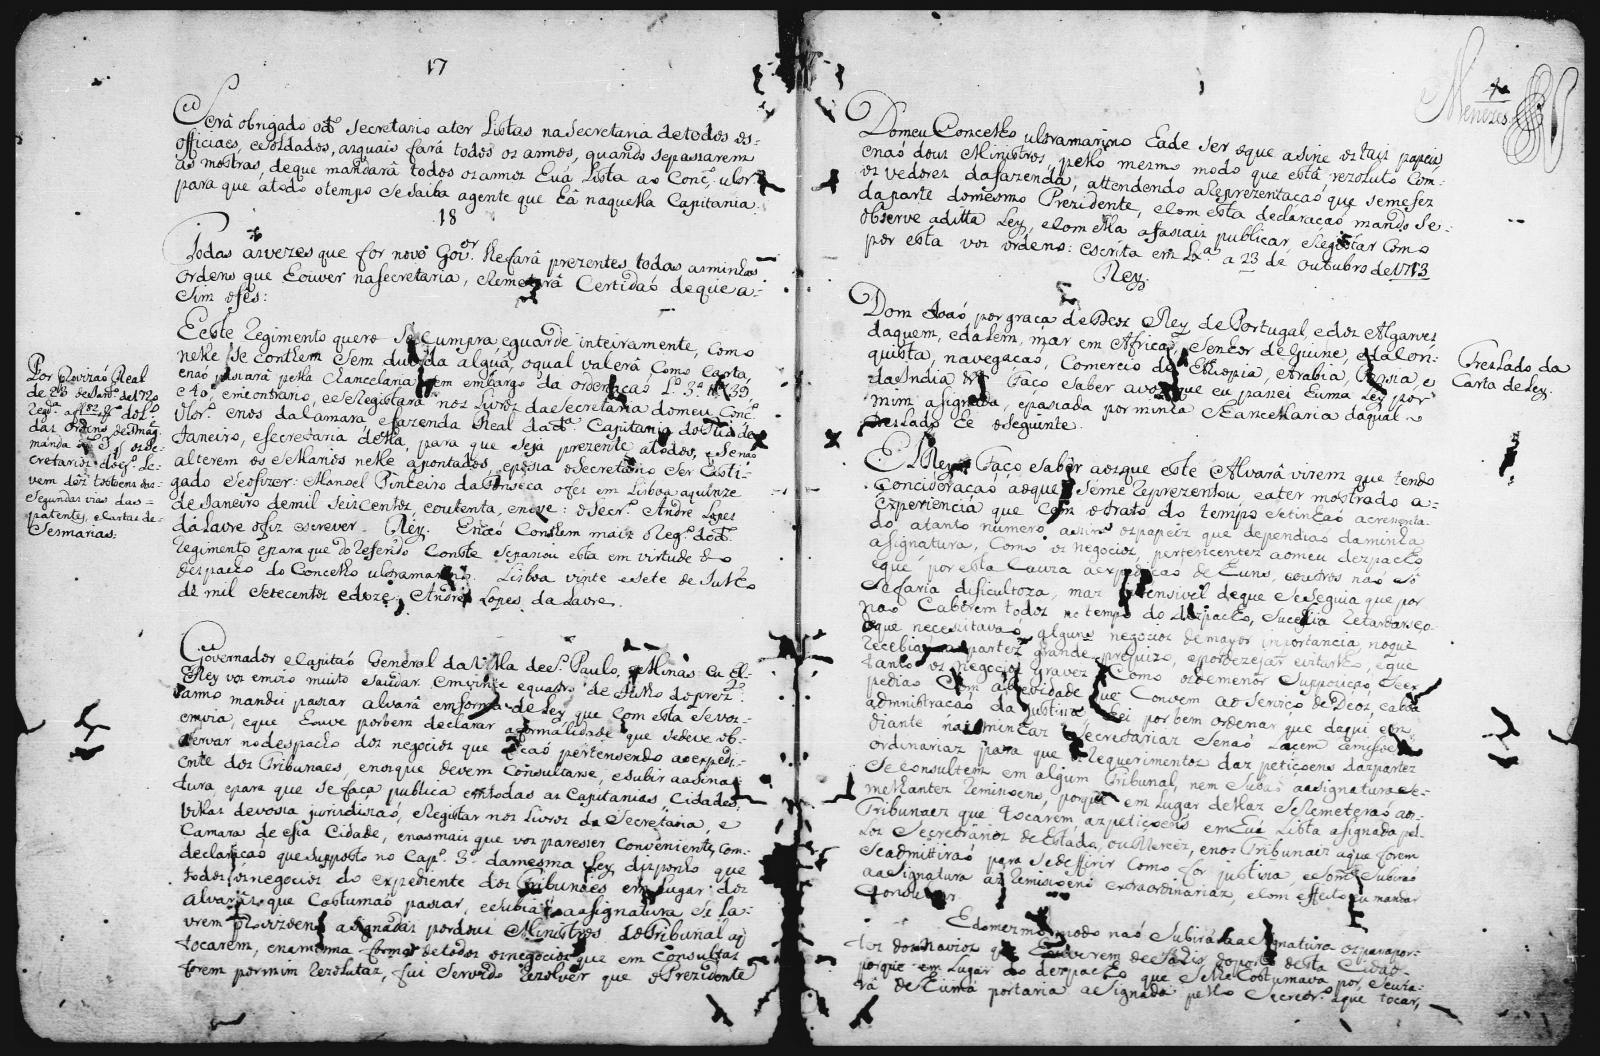 17
Será obrigado od.º Secretario ater Listas na Secretaria detodos os-
officiaes, eSoldados, asquais fará todos os annos, quando sepassarem
as mostras, deque mandará todos os annos Eua Lista ao Conc.º ultr.º
para que atodo otempo se saiba agente que Eâ naquella Capitania.
18
Todas asvezes que for novo Gov.or lhefarâ prezentes todas asminhas
ordens que Eouver naSecretaria, eRemeterâ Certidaõ deque a-
Sim ofes:
Eeste Regimento quero Se Cumpra eguarde inteiramente, Como
nelle Se Conthem Sem duvida algũa, oqual valerâ Como Carta,
enaõ passarâ pella Chancelaria Sem embargo da ordenaçaõ L.º 3.º 39
e 40, emContrario, eeRegistarâ nos Livros daSecretaria domeu Conc.º
Ultr.º enos daCamara efazenda Real dad.ª Capitania doRio de
Janeiro, eSecretaria della, para que Seja prezente atodos, eSenaõ
alterem os Sellarios nelle apontados, epossa oSecretario Ser Casti-
gado Seofizer. Manoel Pinheiro daFonseca ofes em Lisboa aquinze
de Janeiro demil Seiscentos, eoutenta, enove: oSecr.º André Lopes
da Lavre ofiz escrever. Rey. Enaõ Conthem mais o Reg.º dod.º
Regimento epara que do Referido Conste Sepassou esta em virtude do
despacho do Concelho ultramarino. Lisboa vinte eSete de Julho
de mil Setecentos edoze, Andre Lopes da Lavre.
Por Provizaõ Real
de 23 de Jan.ro de 1720
Reg.ª af 82 do L.º
das ordens
manda S. Mg.e osSe-
cretarios
vem dos
Segundas vias das
patentes, eCartas de
Sesmarias.
Governador eCapitaõ General daVilla deS. Paulo, eMinas. Eu El-
Rey vos envio muito Saudar. Emvinte equatro de Julho deprez.te
anno mandei passar alvarâ emforma de Ley que Com esta Sevos-
envia, eque Eouve porbem declarar aformalidade que Sedeve ob-
servar nodespacho dos negocios que ficaõ pertensendo aoexpedi-
ente dos Tribunaes, enosque devem Consultarse, eSubir aasina-
tura, epara que Se faça publica emtodas as Capitanias, Cidades,
Villas devossa jurisdiçaõ, eRegistar nos Livros da Secretaria, e
Camara de essa Cidade, enasmais que vos paresser Conveniente, Com-
declaraçaõ que Supposto no Cap.º 3.º damesma Ley disponho que
todos osnegocios do expediente dos Tribunaes em Lugar dos
alvarâs que Costumaõ passar, eSubiaõ aasignatura Se La-
vrem Provizoens asignadas pordous Ministros doTribunal aq
tocarem, enamesma forma detodos osnegocios que em Consultas
forem pormim Rezolutas, fui Servido Rezolver que oPrezidente
4
Menezes
Domeu Concelho ultramarino Eade Ser oque asine os tais papeis
enaõ dous Ministros, pello mesmo modo que estâ rezoluto Com-
os vedores dafazenda, attendendo aReprezentaçaõ que Semefez
daparte domesmo Prezidente, eCom esta declaraçaõ mando Se-
observe aditta Ley, eCom ella afassais publicar, eRegistar Como
por esta vos ordeno: escrita em Lx.ª a 23 de outubro de1713
Rey.
Dom Joaõ por graça de Deos Rey de Portugal edos Algarves,
daquem, edalem, mar em Africa, Senhor deGuine, edaCon-
quista, navegaçaõ, Comercio de Ethiopia, Arabia, Persia, e
daIndia &. Faço Saber avos que eu passei Euma Ley por
mim asignada, epassada porminha Chancellaria daqual o
treslado he oseguinte.
Treslado da
Carta de Ley.
El Rey Faço Saber aosque este Alvarâ virem que tendo
Concideraçaõ aoque Seme Reprezentou, eater mostrado a-
Experiencia que Com otrato do tempo Setinhaõ acresenta-
do atanto numero, assim ospapeis que dependiaõ daminha
asignatura, Como os negocios, pertencentes aomeu despacho
eque por esta Cauza aexpediçaõ de Euns, eoutros naõ Sô
Sefazia dificultoza, mas deque SeSeguia que por
naõ Caberem todos no tempo do despacho, Sucedia Retardarse,o
que necessitavaõ alguns negocios demayor importancia noque
Recebiaõ aspartes grande prejuizo, epordezejar evitarlho, eque
tanto os negocios graves Como osdemenor Suppoziçaõ, Seex
pediaõ Com abrevidade que Convem ao Serviço deDeos eaboa
admnistraçaõ da Justiça Eei porbem ordenar que daqui em
diante nas minhas Secretarias Senaõ Lacem Remissoe
ordinarias para que os Requerimentos das petiçoens daspartes
Se Consultem em algum Tribunal, nem Subaõ aasignatura Se-
melhantes Remissoens, porque em Lugar dellas SeRemeteraõ aos-
Tribunaes que tocarem aspetiçoens emEuâ Lista asignada pel-
Los Secretarios de Estado, ou Merces, enos Tribunaes aque forem
Seadmittiraõ para Sedefferir Como for justiça, eSomte Subiraõ
aasignatura as Remissoens extraordinarias, eCom effeito eu mandar
Consultar.
Edomesmo modo naõ Subiraõ aasignatura ospassapor-
tes dosnavios que Eouverem deSahir doporto desta Cidad-
porque em Lugar do despacho que SelheCostumava por, Seuza-
râ deEuma portaria asignada pello Secretr.º aque tocar,